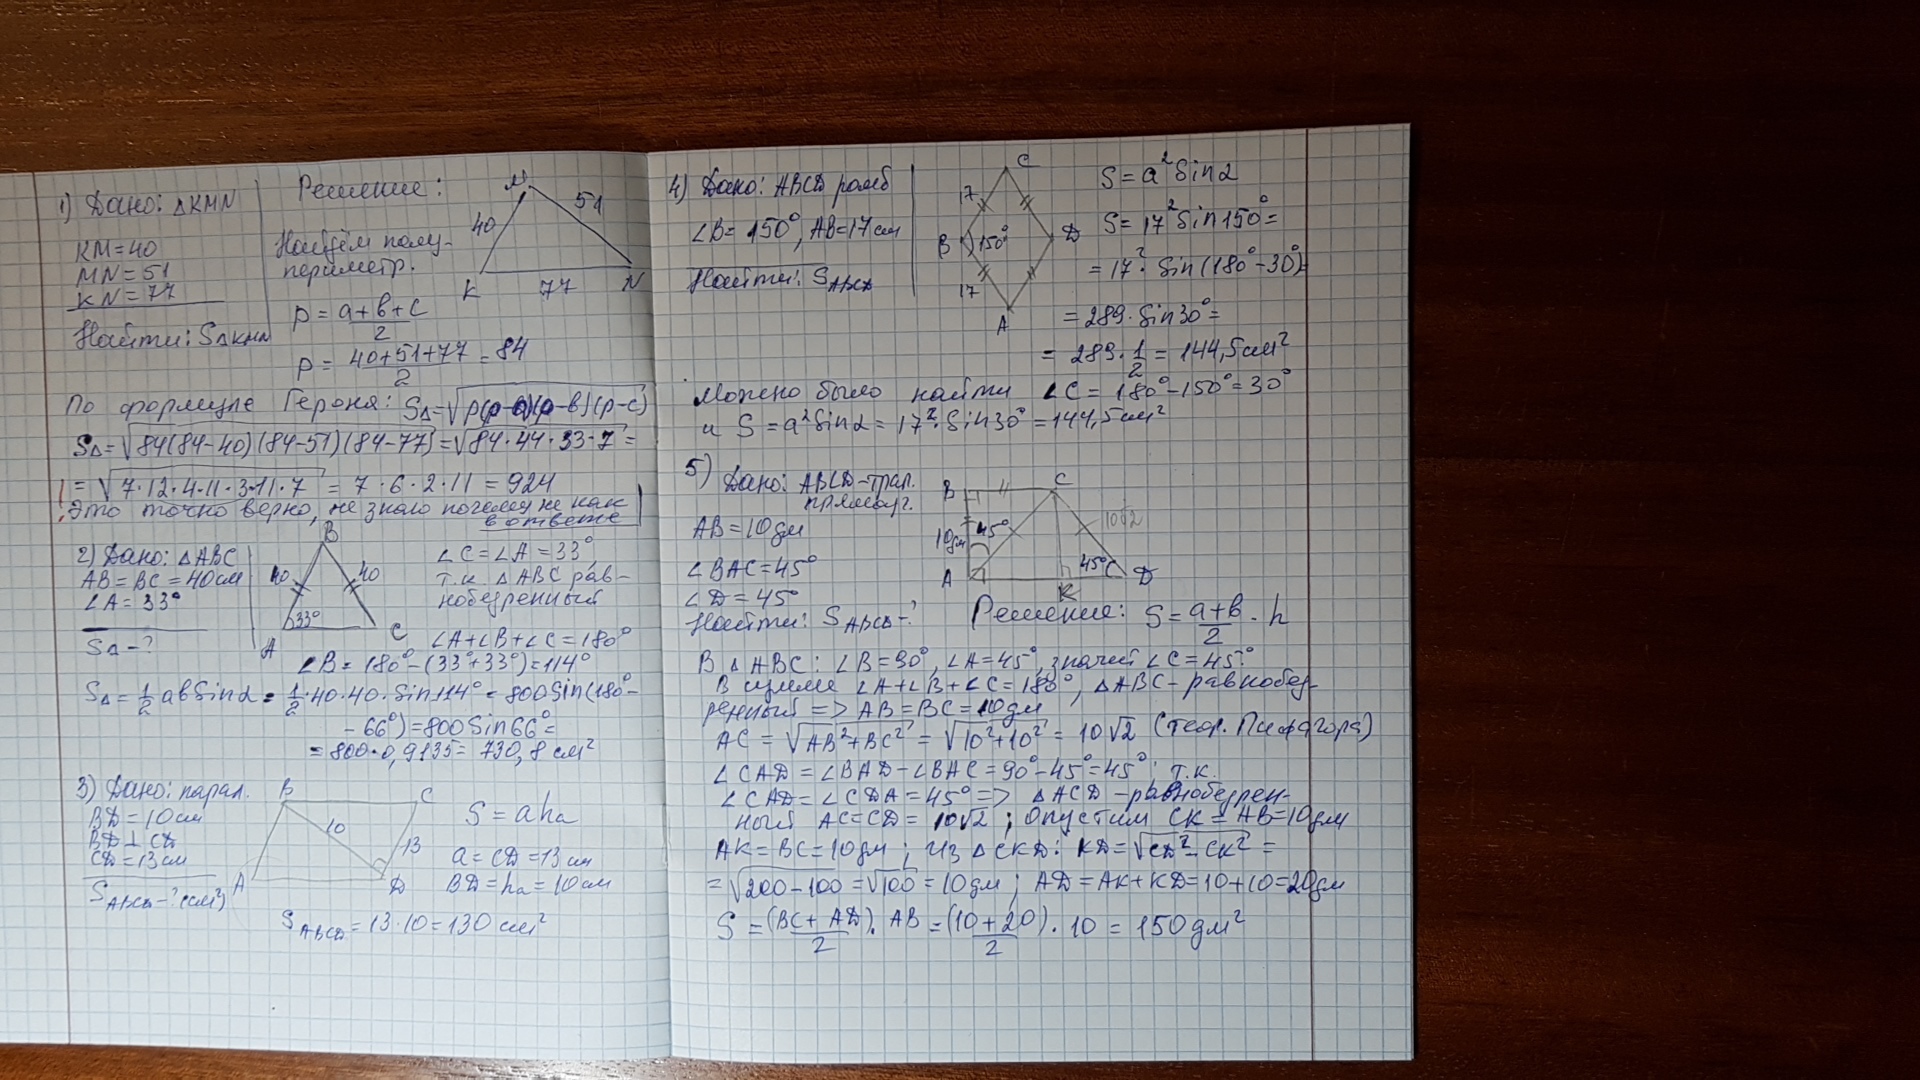 1) Дано: △KMN
KM=40
MN=51
KN=77
Найти: S△KMN
Решение:
Найдём полу-
периметр.
M
40
51
K
77
N
p = (a+b+c)/2
p = (40+51+77)/2 = 84
По формуле Герона: S△=√p(p-a)(p-b)(p-c)
S△=√84(84-40)(84-51)(84-77)=√84·44·33·7 =
= √7·12·4·11·3·11·7 = 7·6·2·11 = 924
Это точно верно, не знаю почему не как
в ответе
2) Дано: △ABC
AB=BC=40см
∠A=33°
S△-?
B
40
40
33°
A
C
∠C=∠A=33°,
т.к. △ABC рав-
нобедренный
∠A+∠B+∠C=180°
∠B=180°-(33°+33°)=114°
S△=1/2 ab Sinα = 1/2·40·40·Sin114°=800Sin(180°-
-66°)=800Sin66°=
=800·0,9135=730,8 см²
3) Дано: парал.
BD=10см
BD⊥CD
CD=13см
S ABCD-?(см²)
B
C
10
13
A
D
S=aha
a=CD=13см
BD=ha=10см
S ABCD=13·10=130 см²
4) Дано: ABCD ромб
∠B=150°, AB=17см
Найти: S ABCD
C
17
B
150°
D
17
A
S=a²Sinα
S=17²Sin150°=
=17²·Sin(180°-30°)=
=289·Sin30°=
=289·1/2=144,5см²
Можно было найти ∠C=180°-150°=30°
и S=a²Sinα=17²·Sin30°=144,5см²
5) Дано: ABCD-трап.
прямоуг.
AB=10дм
∠BAC=45°
∠D=45°
Найти: S ABCD-?
B
C
10дм
45°
10√2
45°
A
K
D
Решение: S=(a+b)/2·h
В △ABC: ∠B=90°, ∠A=45°, значит ∠C=45°
В сумме ∠A+∠B+∠C=180°, △ABC-равнобед-
ренный => AB=BC=10дм
AC=√AB²+BC²=√10²+10²=10√2 (теор. Пифагора)
∠CAD=∠BAD-∠BAC=90°-45°=45°; т.к.
∠CAD=∠CDA=45°=> △ACD-равнобедрен-
ный AC=CD=10√2; Опустим CK=AB=10дм
AK=BC=10дм; Из △CKD: KD=√CD²-CK²=
=√200-100=√100=10дм; AD=AK+KD=10+10=20дм
S=(BC+AD)/2·AB=(10+20)/2·10=150дм²